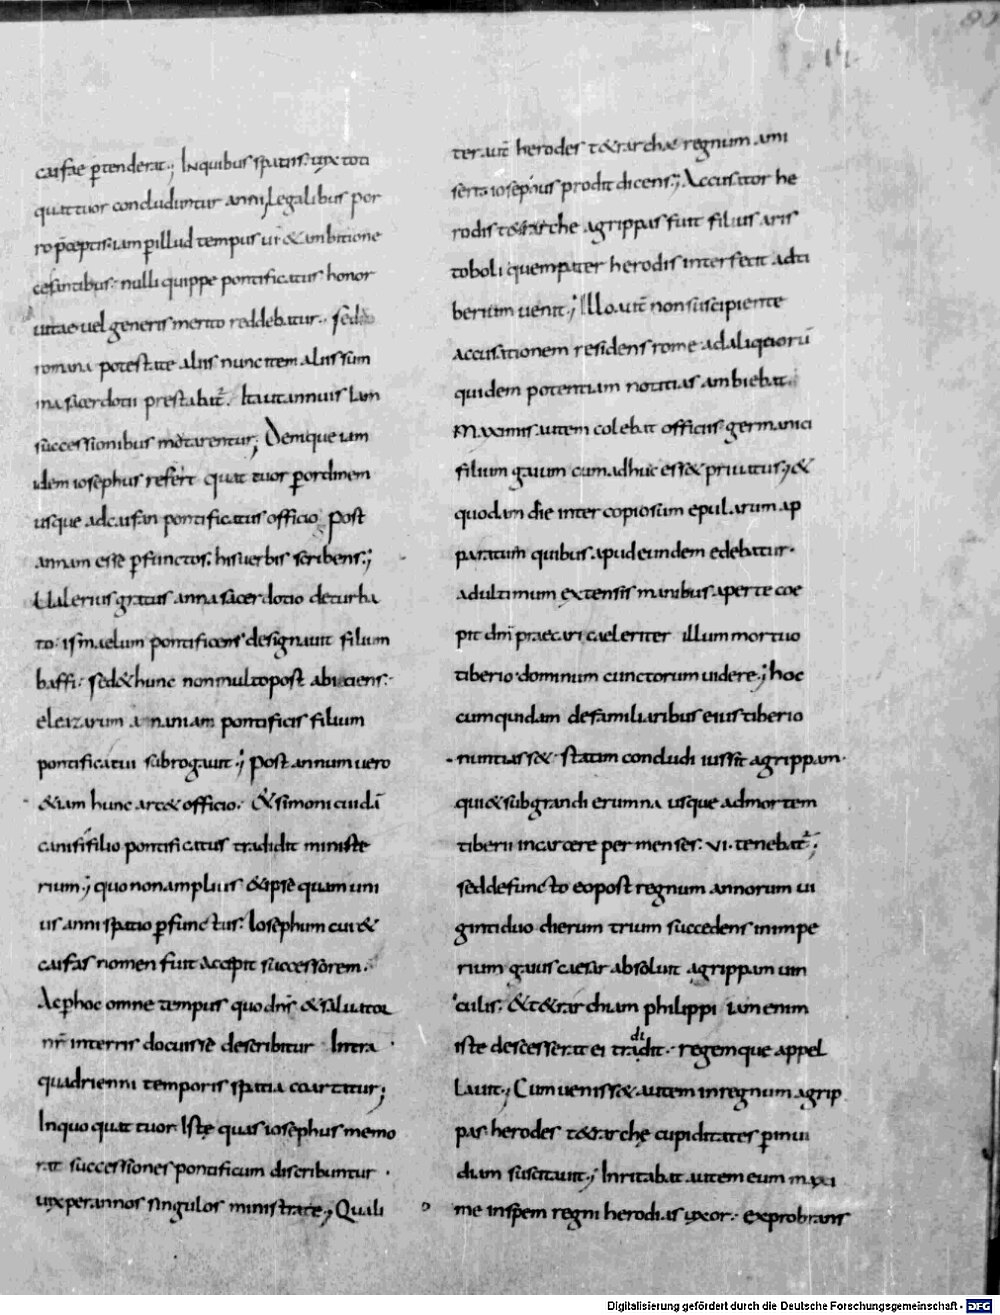 caifae ptenderat; Inquibus spatiis uix toti
quattuor concluduntur anni, Legalibus por
ro pceptis iam p illud tempus ui & ambitione
cessantibus nulli quippe pontificatus honor
uitae uel generis merito reddebatur. sed
romana potestate aliis nunc item aliis sum
ma sacerdotii prestabat. Ita ut annuis tam
successionibus mutarentur; Denique iam
idem iosephus refert quattuor p ordinem
usque ad caifan pontificatus officio post
annam esse pfunctos. his uerbis scribens;
Ualerius gratus anna sacerdotio deturba
to ismaelum pontificem designauit filium
baffi. sed & hunc non multo post abiciens
eleazarum ananiam pontificis filium
pontificatui subrogauit; post annum uero
&iam hunc arc& officio. & simoni cuidā
canifi filio pontificatus tradidit ministe
rium; quo non amplius & ipse quam uni
us anni spatio pfunctus. Iosephum cui &
caifas nomen fuit accepit successorem.
Ac p hoc omne tempus quo dns & saluator
nr in terris docuisse describitur Intra
quadrienni temporis spatia coartatur;
In quo quattuor Iste quas iosephus memo
rat successiones pontificum discribuntur
uix per annos singulos ministrate; Quali
ter aut herodes t&rarchae regnum ami
serit iosephus prodit dicens; Accusator he
rodis t&rarche agrippas fuit filius aris
toboli quem pater herodis interfecit ad ti
berium uenit; Illo aut non suscipiente
accusationem residens rome ad aliquorū
quidem potentiam notitias ambiebat.
Maximis autem colebat officiis germanici
filium gaium cum adhuc ess& priuatus; &
quodam die inter copiosum epularum ap
paratum quibus apud eundem edebatur.
ad ultimum extensis manibus aperte coe
pit dm praecari caeleriter illum mortuo
tiberio dominum cunctorum uidere; hoc
cum quidam de familiaribus eius tiberio
nuntiass& statim concludi iussit agrippam
qui & sub grandi erumna usque ad mortem
tiberii in carcere per menses. VI. tenebat;
sed defuncto eo post regnum annorum ui
ginti duo dierum trium succedens in impe
rium gaius caesar absoluit agrippam uin
culis. & t&rarchiam philippi iam enim
iste descesserat ei tradidit. regemque appel
lauit; Cumueniss& autem in regnum agrip
pas herodes t&rarche cupiditates p inui
diam suscitauit; Inritabat autem eum maxi
me in spem regni herodias uxor. exprobrans
Digitalisierung gefördert durch die Deutsche Forschungsgemeinschaft - DFG